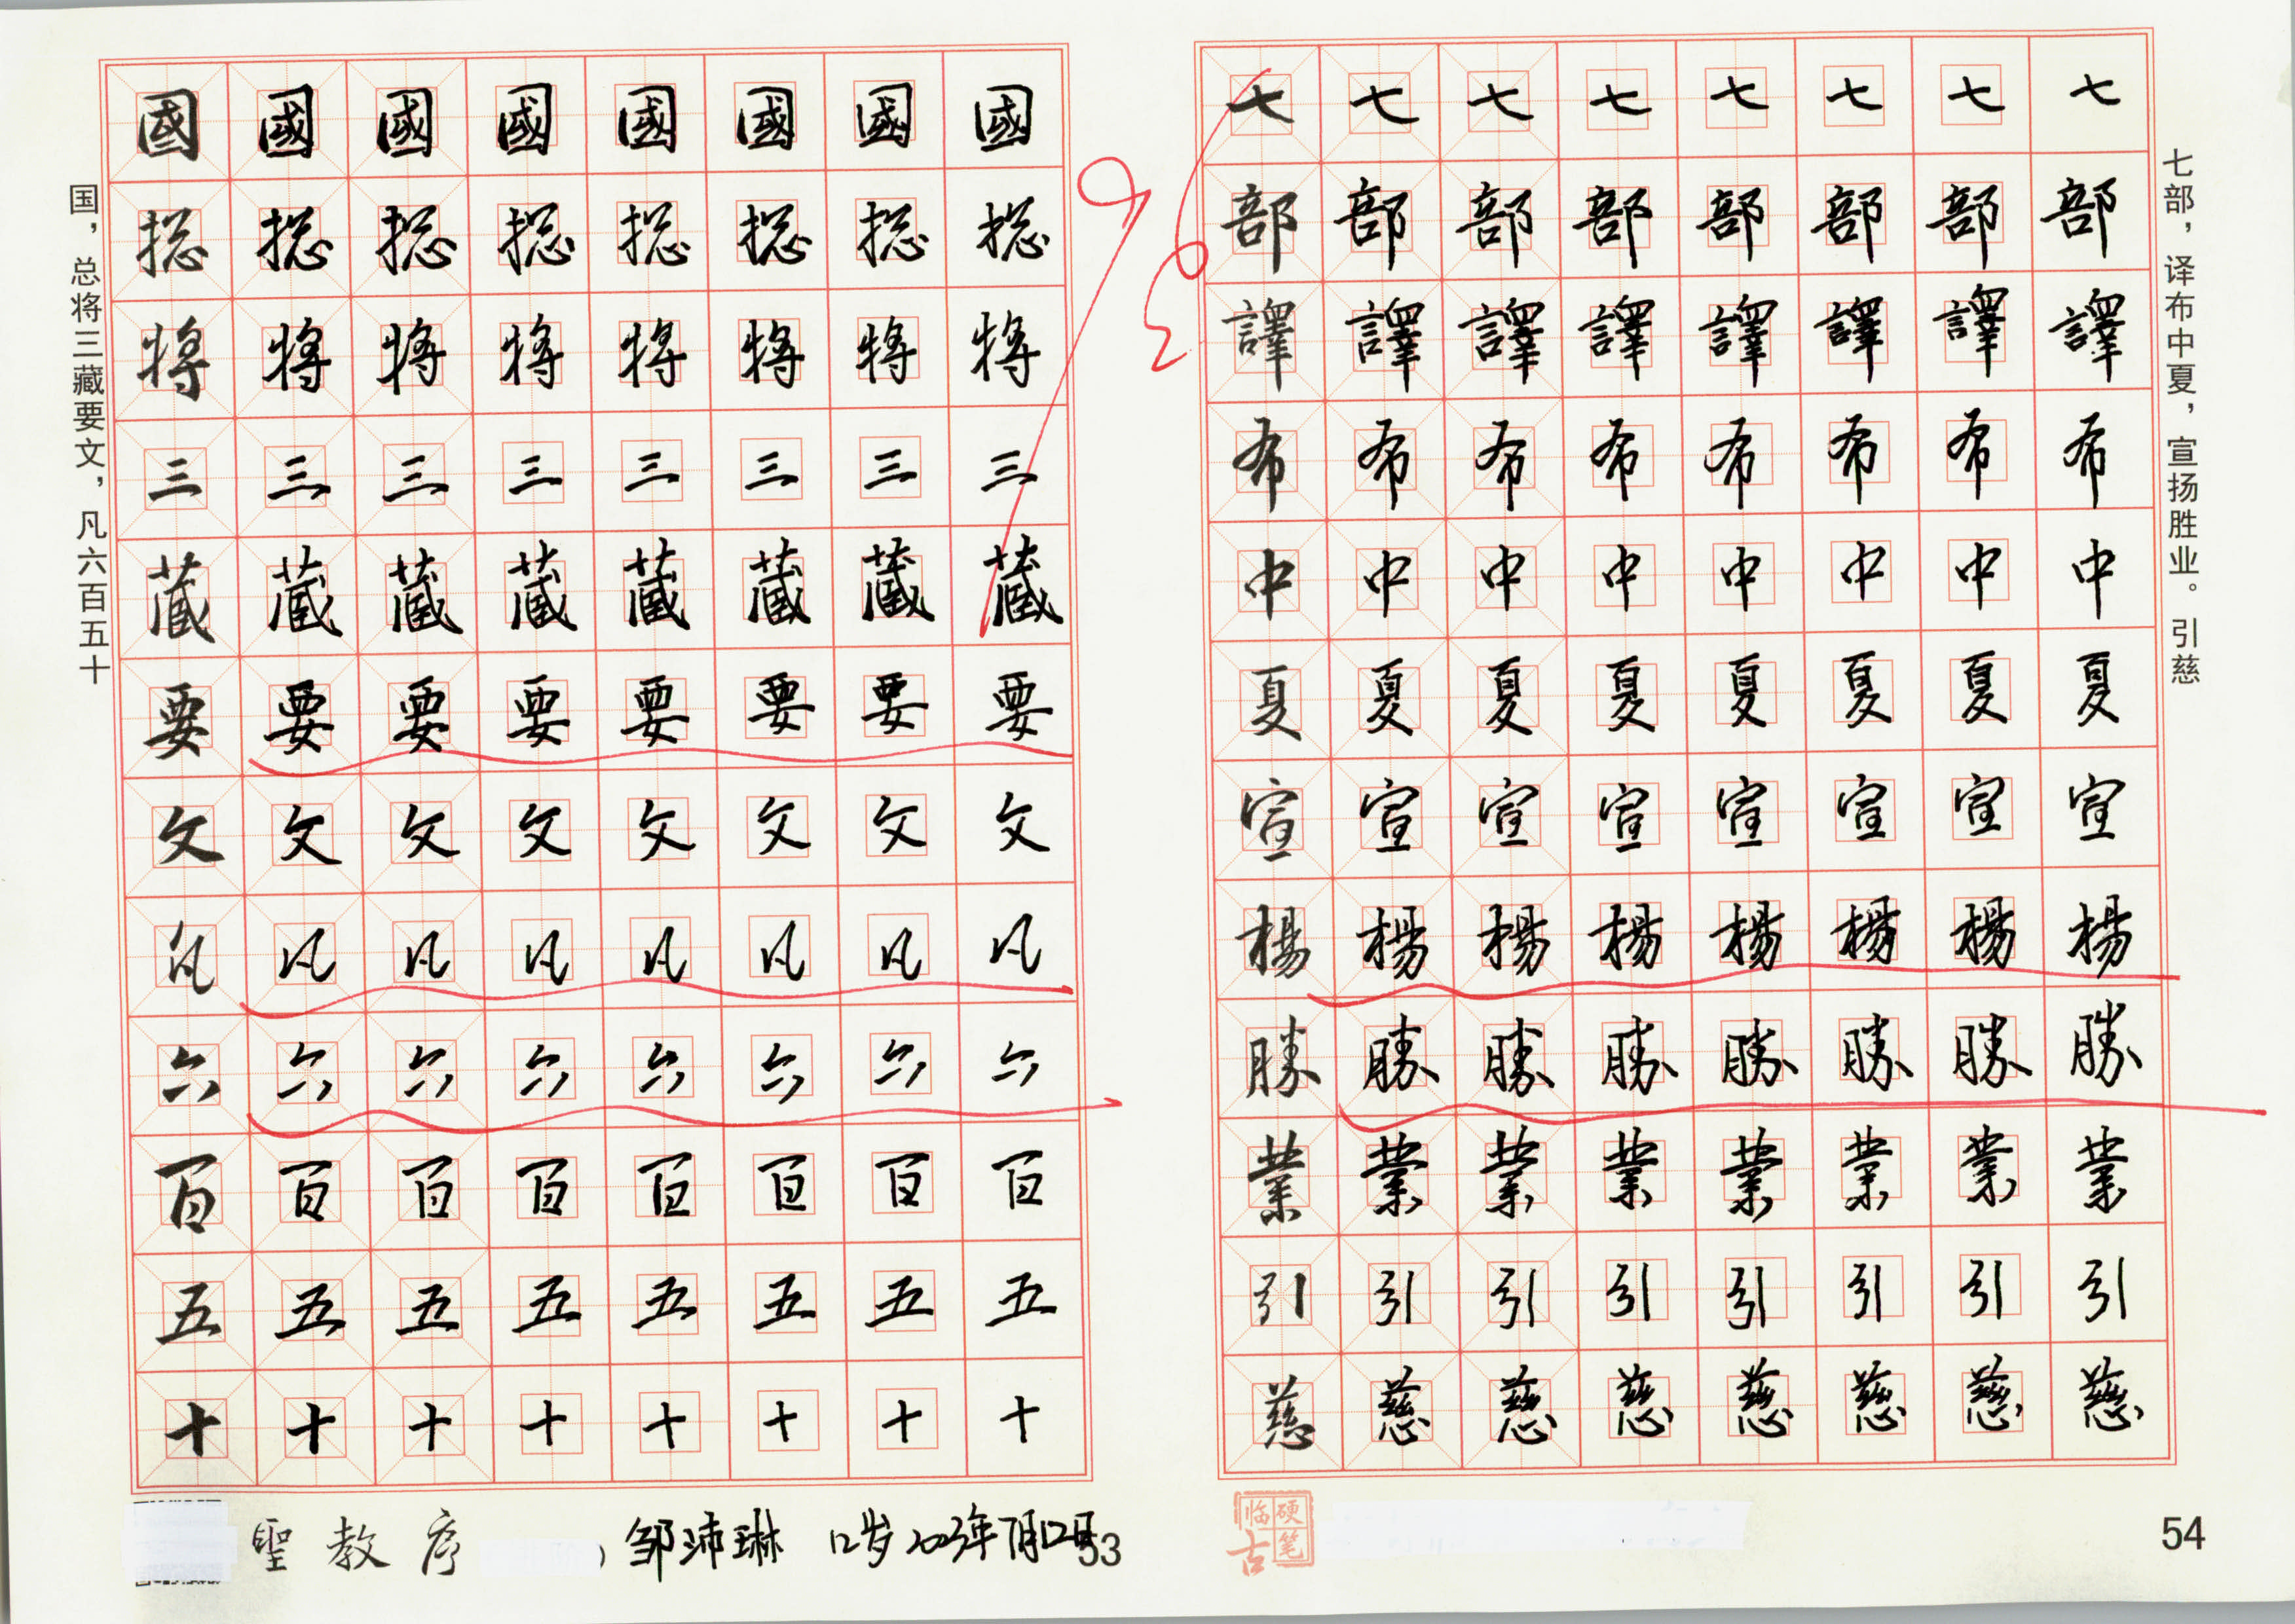 國國國國國國國國
捴捴捴捴捴捴捴捴
將將將將將將將將
三三三三三三三三
蔵蔵蔵蔵蔵蔵蔵蔵
要要要要要要要要
文文文文文文文文
凡凡凡凡凡凡凡凡
六六六六六六六六
百百百百百百百百
五五五五五五五五
十十十十十十十十
国，总将三藏要文，凡六百五十
聖教序
邹沛琳 12岁 2023年7月12日
53
七七七七七七七七
部部部部部部部部
譯譯譯譯譯譯譯譯
布布布布布布布布
中中中中中中中中
夏夏夏夏夏夏夏夏
宣宣宣宣宣宣宣宣
楊楊楊楊楊楊楊楊
勝勝勝勝勝勝勝勝
業業業業業業業業
引引引引引引引引
慈慈慈慈慈慈慈慈
七部，译布中夏，宣扬胜业。引慈
硬笔临古
54